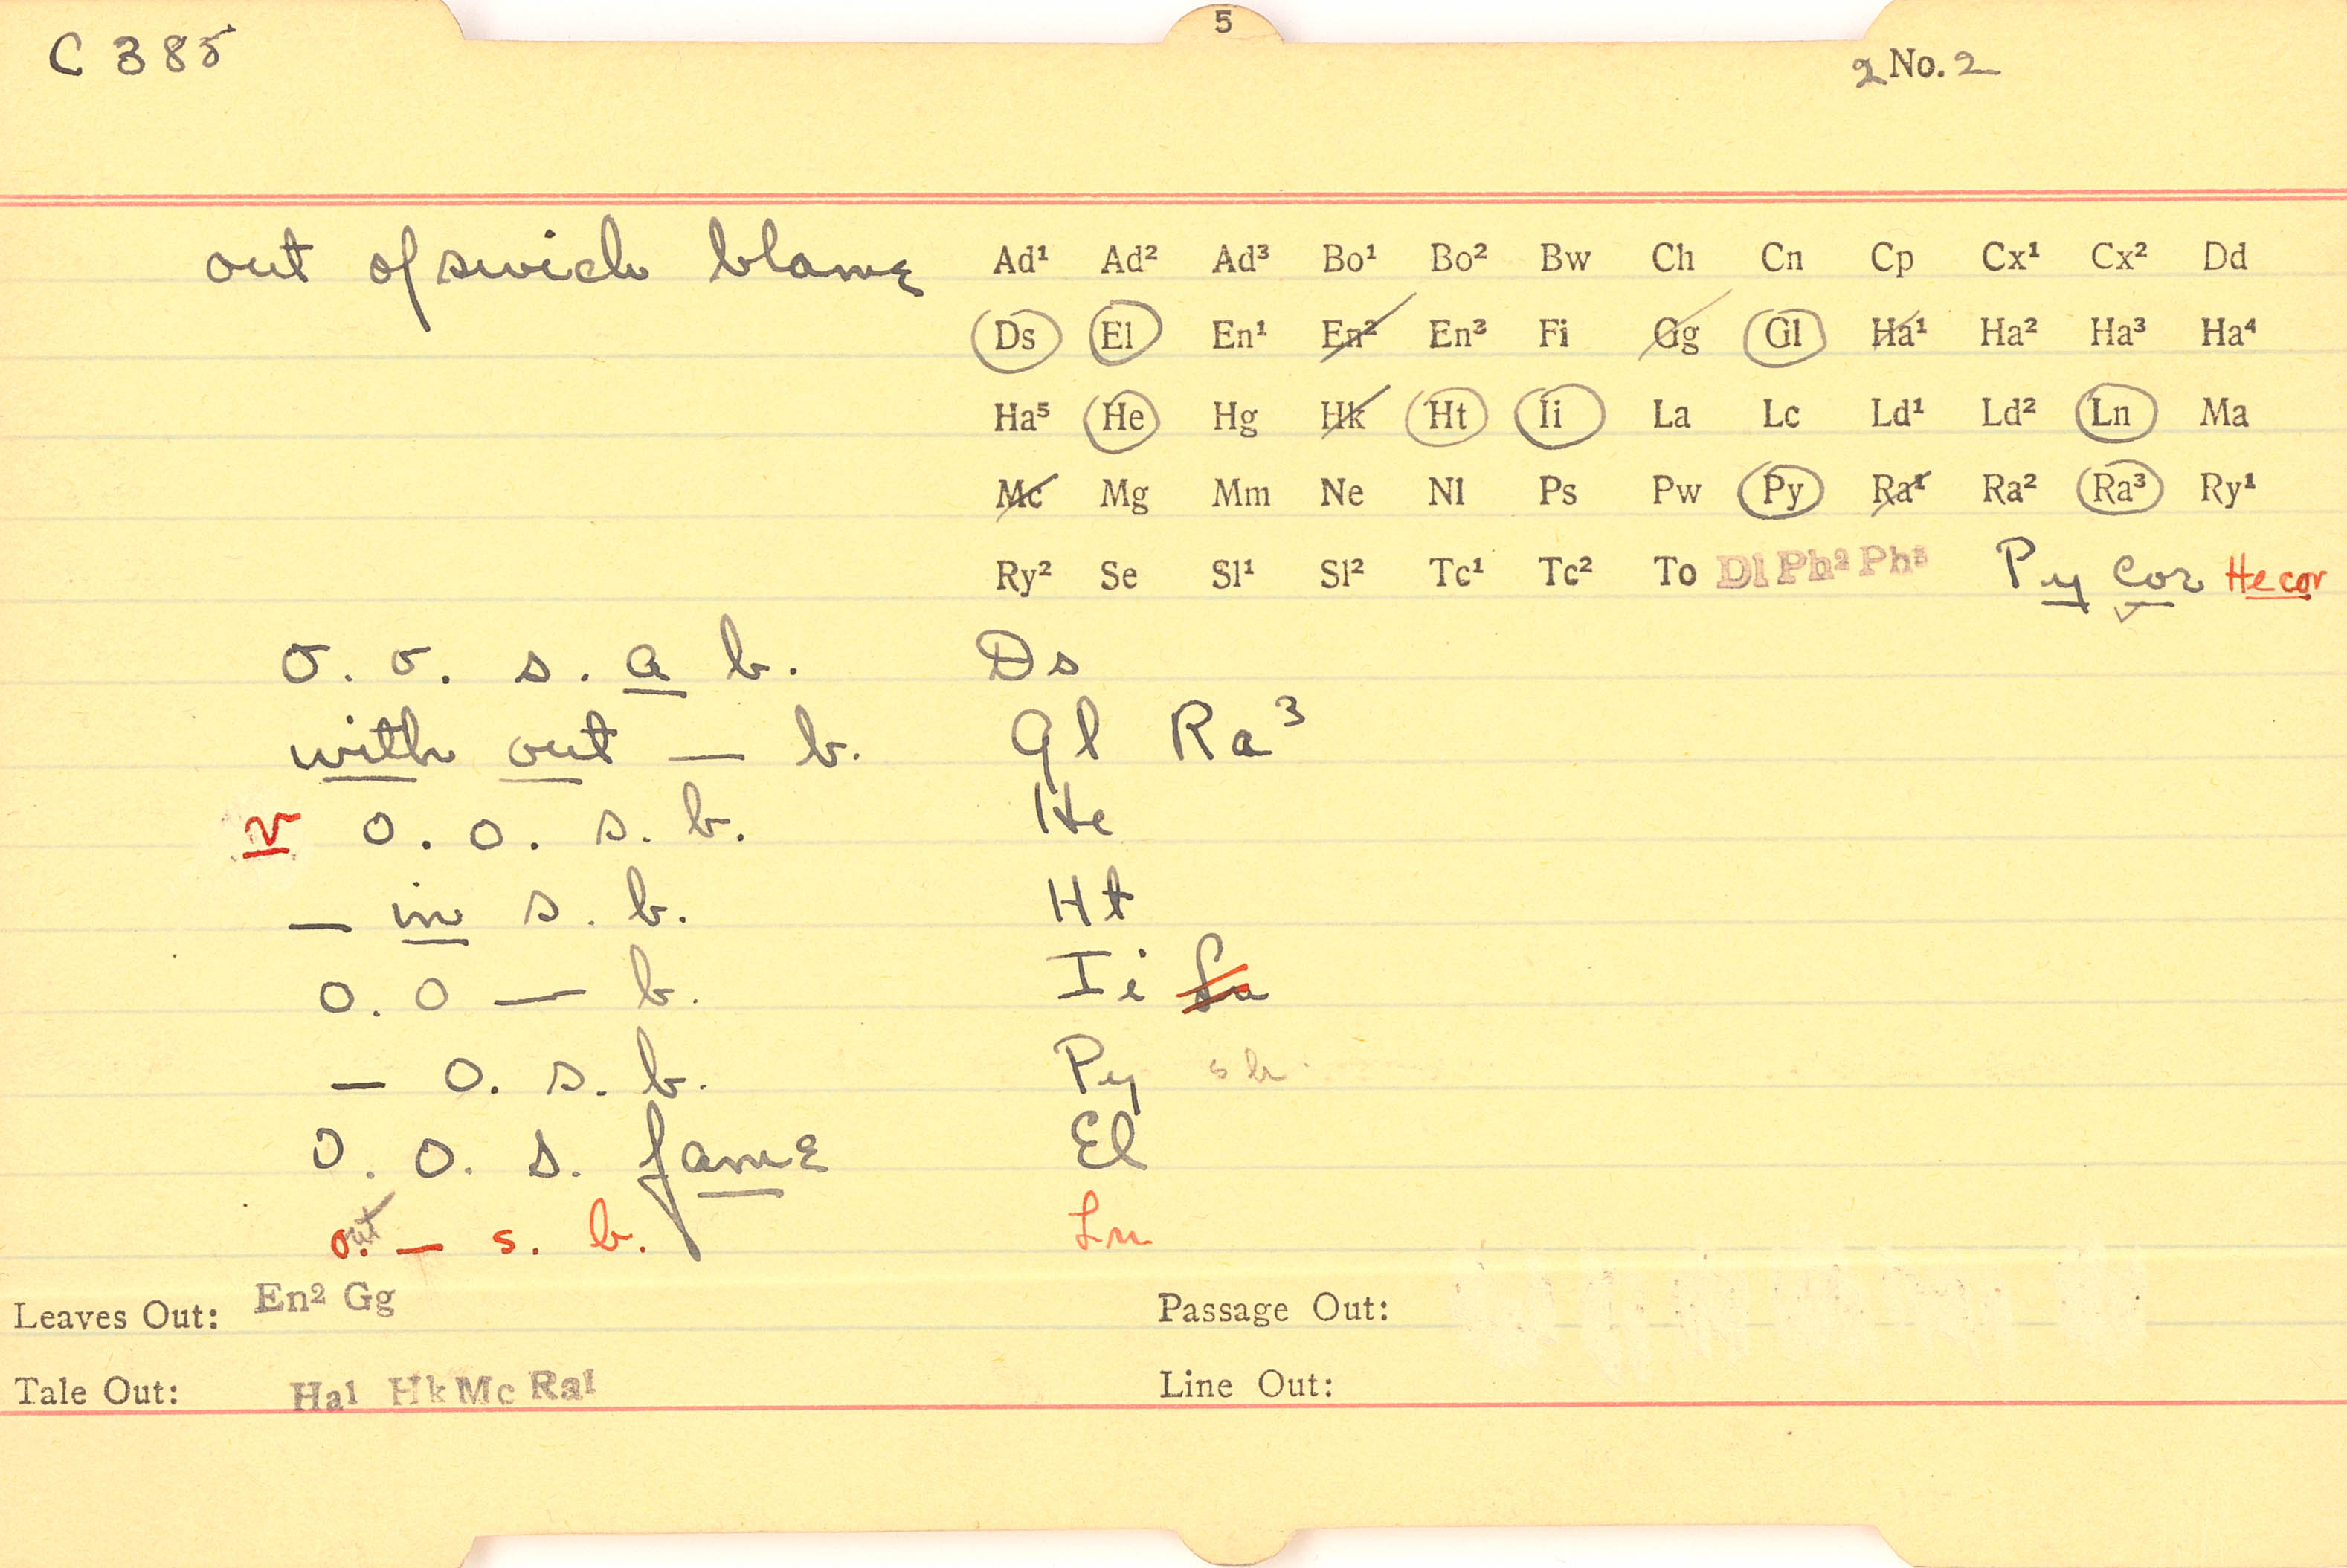 5
C 385
2 No. 2
out of swich blame
Ad¹ Ad² Ad³ Bo¹ Bo² Bw Ch Cn Cp Cx¹ Cx² Dd
Ds El En¹ En² En³ Fi Gg Gl Ha¹ Ha² Ha³ Ha⁴
Ha⁵ He Hg Hk Ht Ii La Lc Ld¹ Ld² Ln Ma
Mc Mg Mm Ne Nl Ps Pw Py Ra¹ Ra² Ra³ Ry¹
Ry² Se Sl¹ Sl² Tc¹ Tc² To Dl Ph² Ph³ Py cor He cor
o. o. s. a b. Ds
with out — b. Gl Ra³
o. o. s. b. He
— in s. b. Ht
o. o — b. Ii
— o. s. b. Py
o. o. s. fame El
o. — s. b. Ln
Leaves Out: En² Gg
Passage Out:
Tale Out: Ha¹ Hk Mc Ra¹
Line Out: